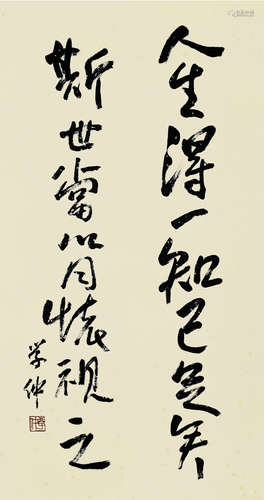 人生得一知己足矣
斯世當以同懷視之
學仲